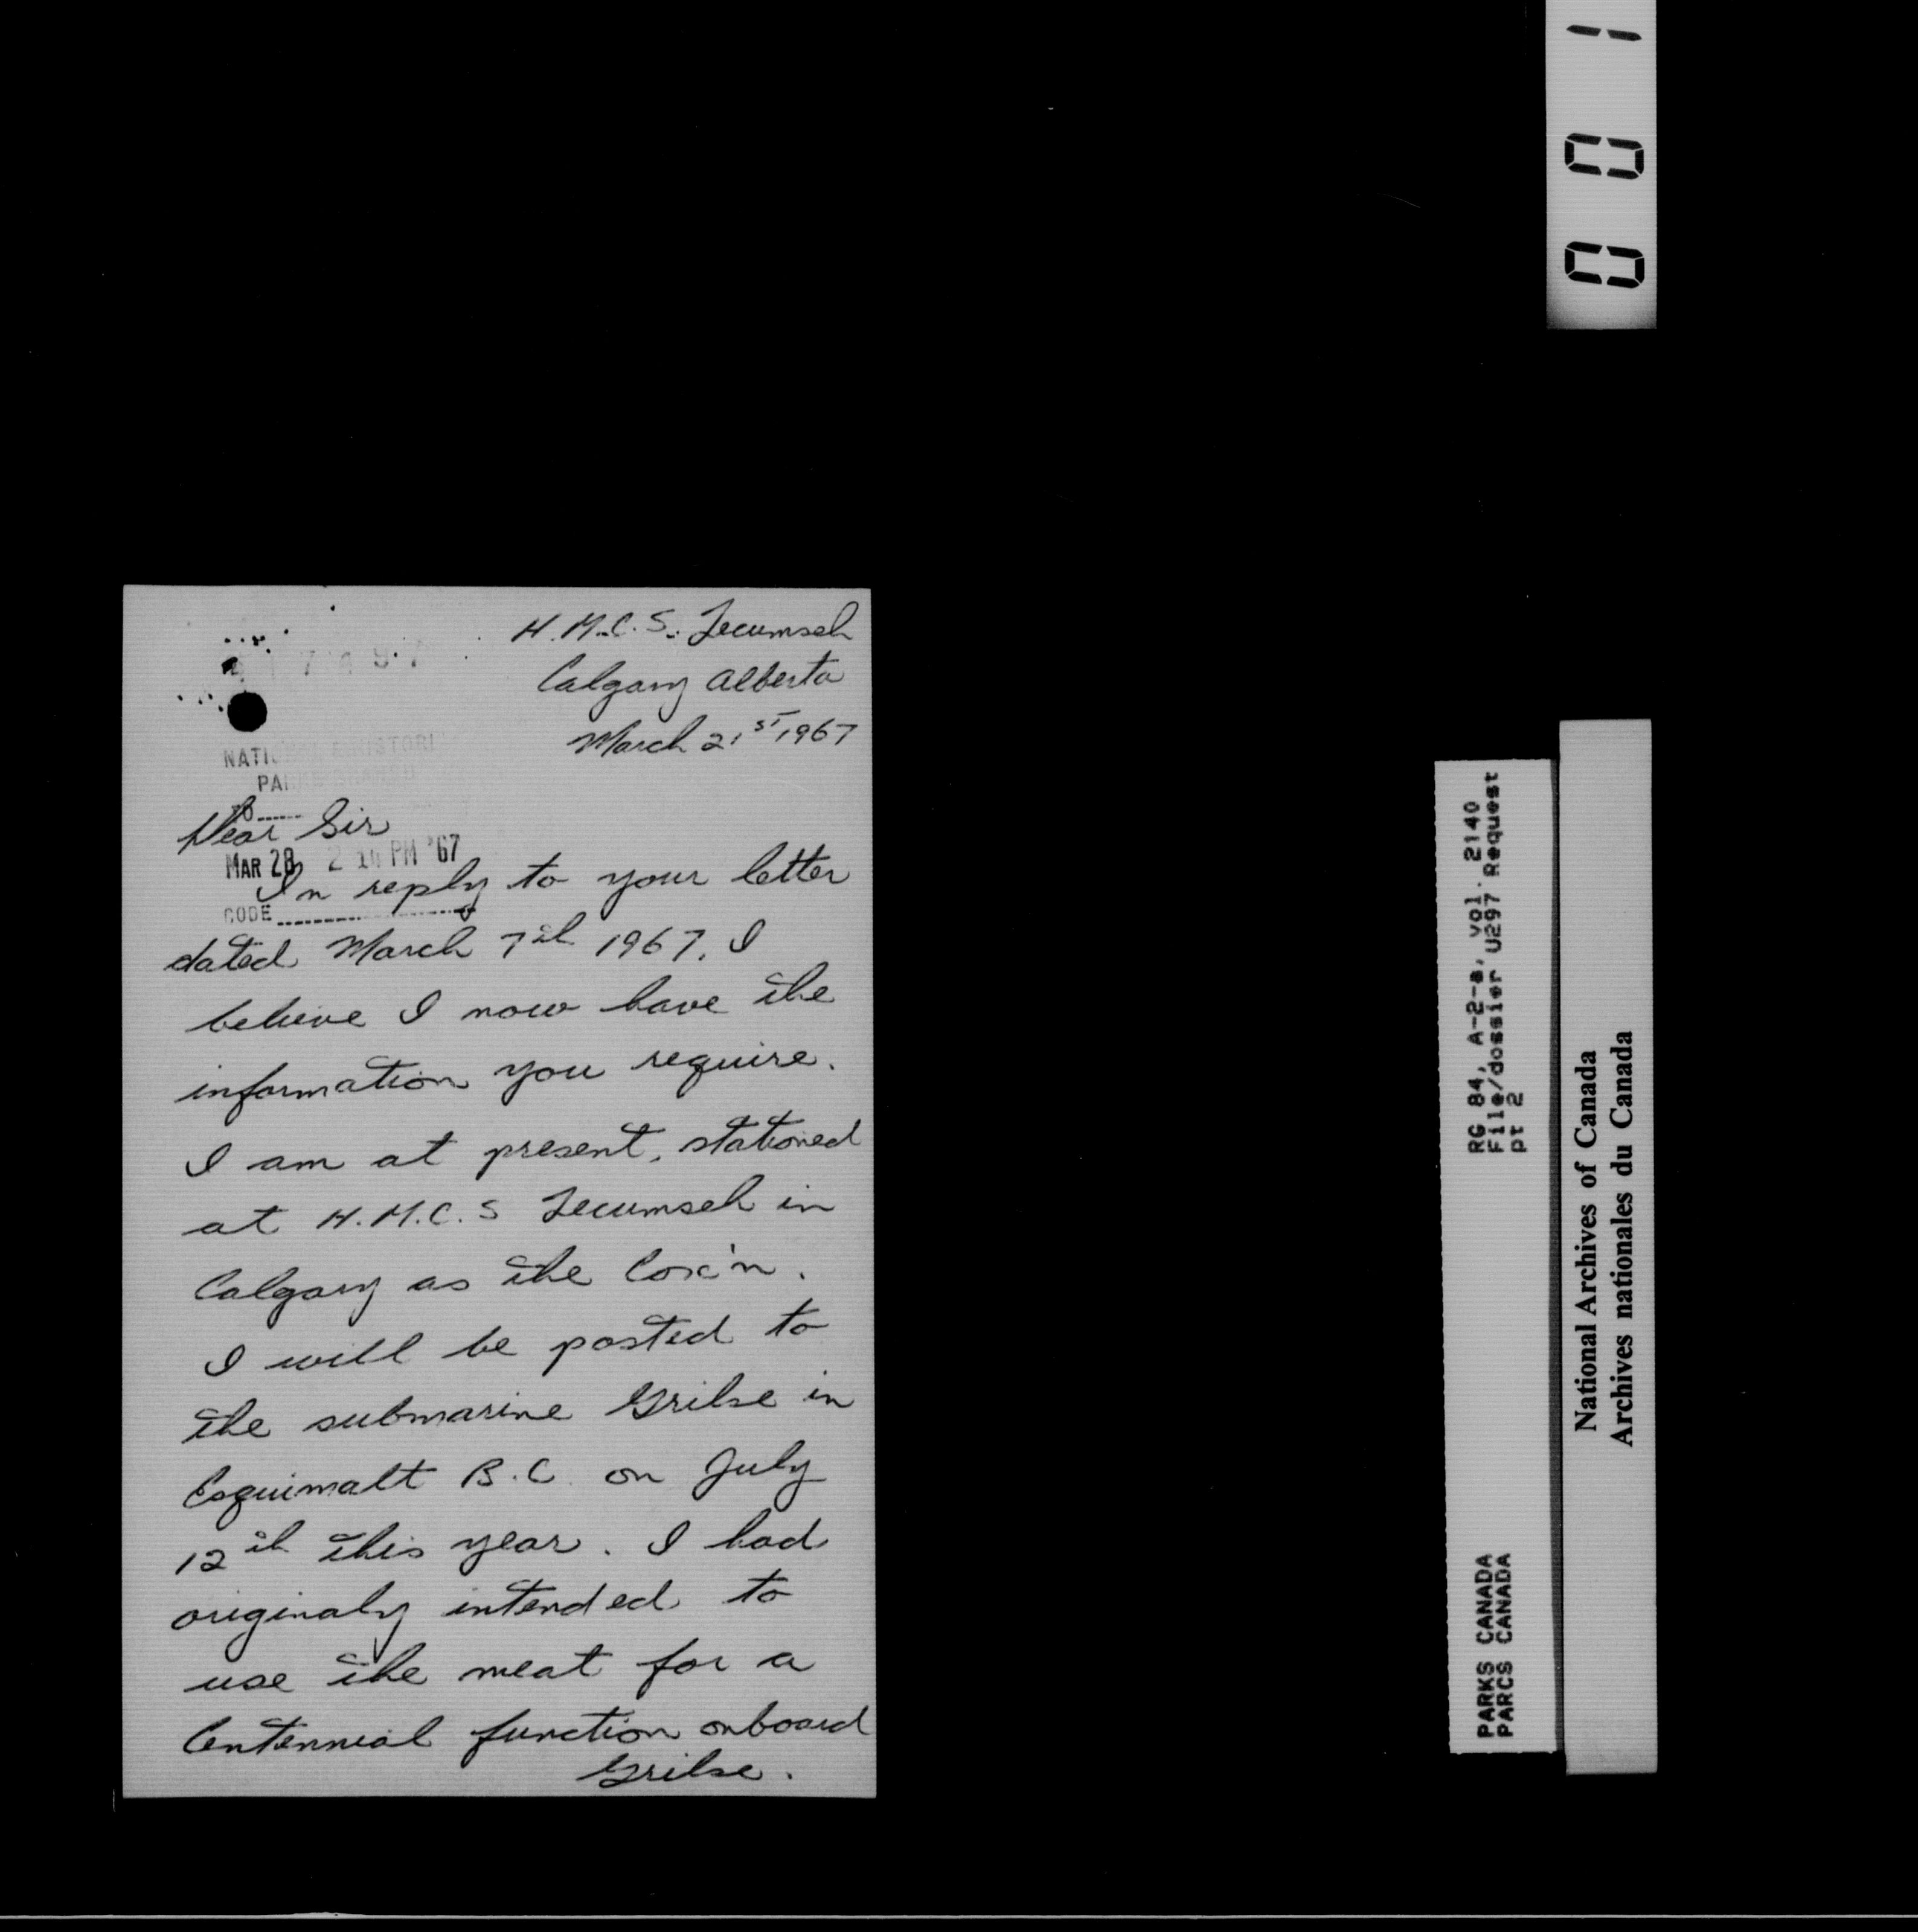 H.M.C.S. Tecumseh
Calgary Alberta
March 21st 1967
NATIONAL & HISTORI
PARKS BRANCH
TO
Dear Sir
MAR 28 2 14 PM '67
In reply to your letter
CODE
dated March 7th 1967, I
believe I now have the
information you require.
I am at present, stationed
at H.M.C.S Tecumseh in
Calgary as the Cox'n.
I will be posted to
the submarine Grilse in
Esquimalt B.C. on July
12th this year. I had
originaly intended to
use the meat for a
Centennial function onboard
Grilse.
001
RG 84, A-2-a, vol. 2140
File/dossier U297 Request
pt 2
PARKS CANADA
PARCS CANADA
National Archives of Canada
Archives nationales du Canada